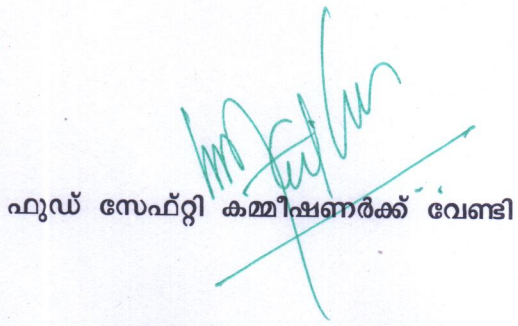 ഫുഡ് സേഫ്റ്റി കമ്മീഷണർക്ക് വേണ്ടി